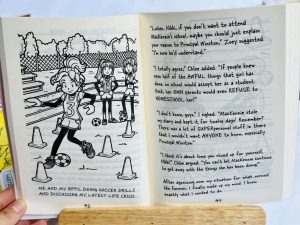 ME AND MY BFFS, DOING SOCCER DRILLS
AND DISCUSSING MY LATEST LIFE CRISIS
42
"Listen, Nikki, if you don't want to attend
MacKenzie's school, maybe you should just explain
your reason to Principal Winston," Zoey suggested.
"I'm sure he'd understand."
"I totally agree," Chloe added. "If people knew
one half of the AWFUL things that girl has
done, no school would accept her as a student.
Heck, her OWN parents would even REFUSE to
HOMESCHOOL her!"
"I don't know, guys," I sighed. "MacKenzie stole
my diary and kept it for twelve days! Remember?
There was a lot of SUPERpersonal stuff in there
that I wouldn't want ANYONE to know, especially
Principal Winston."
"I think it's about time you stood up for yourself,
Nikki," Chloe argued. "You can't let MacKenzie continue
to get away with the things she has been doing."
After agonizing over my situation for what seemed
like forever, I finally made up my mind. I knew
exactly what I needed to do
43